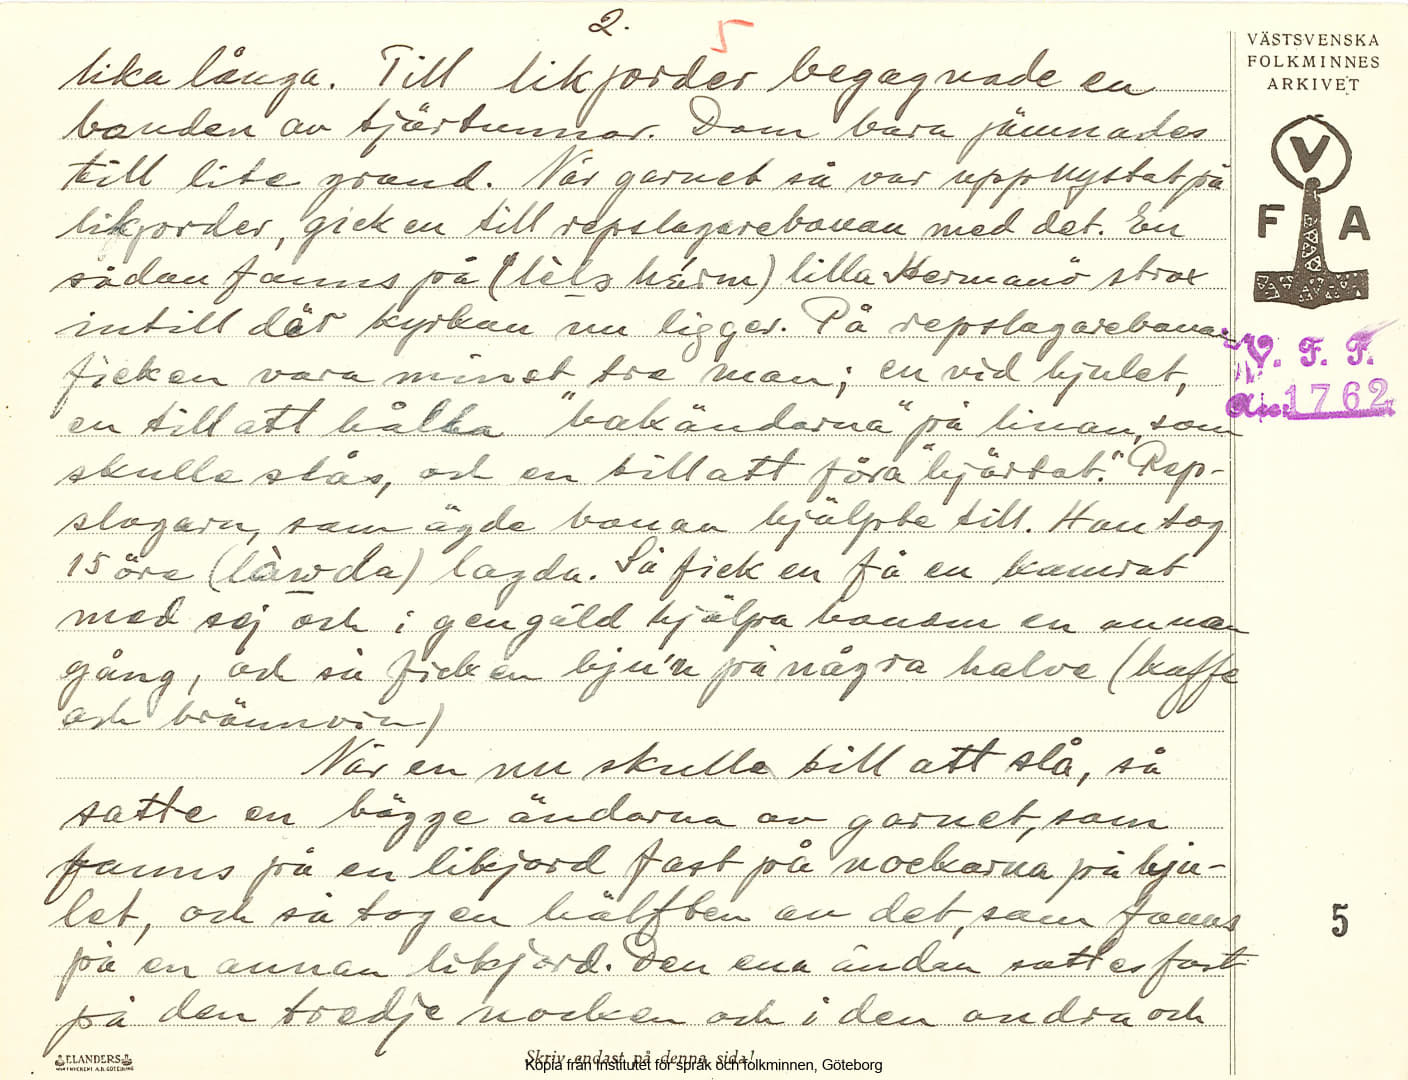 2.
5
lika långa. Till likjorder begagnade en
banden av tjärtunnor. Dom bara jämnades
till lite grand. När garnet så var upphystat på
likjorder, gick en till repslagarebanan med det. En
sådan fanns på (lìlə hǽrm) lilla Hermanö strax
intill där kyrkan nu ligger. På repslagarebanan
fick en vara minst tre man; en vid hjulet,
en till att hålla "bakändarna" på linan, som
skulle slås, och en till att föra "hjärtat". Rep-
slagarn, som ägde banan hjälpte till. Han tog
15 öre (làwda) lagda. Så fick en få en kamrat
med sej och i gengäld hjälpa honom en annan
gång, och så fick en bju'n på några halve (kaffe
och brännvin)
När en nu skulle till att slå, så
satte en bägge ändarna av garnet, som
fanns på en likjord fast på nockarna på hju-
let, och så tog en hälften av det, som fanns
på en annan likjord. Den ena ändan sattes fast
på den tredje nocken och i den andra och
VÄSTSVENSKA
FOLKMINNES
ARKIVET
V
F A
V. F. F.
1762
5
ELANDERS
Skriv endast på denna sida!
Kopia från Institutet för språk och folkminnen, Göteborg